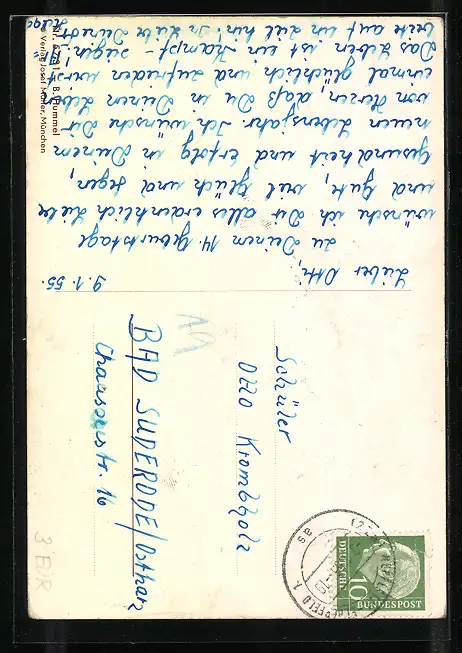 9. 1. 55.
Lieber Otti,
zu Deinem 14. Geburtstage
wünsche ich Dir alles erdenklich Liebe
und Gute, viel Glück und Segen,
Gesundheit und Erfolg in Deinem
neuen Lebensjahr. Ich wünsche Dir
von Herzen, daß Du in Deinem Leben
einmal glücklich und zufrieden wirst
Das Leben ist ein Kampf - siegin!
In Liebe Deine
Verlag Josef Müller, München
B. Hummel
Schüler
Otto Krombholz
BAD SUDERODE/Ostharz
Chausseestr. 16
DEUTSCHE
BUNDESPOST
10
3 EUR